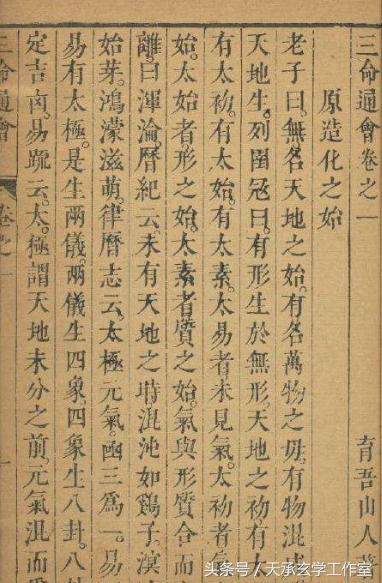 三命通會卷之一 育吾山人著
原造化之始
老子曰。無名天地之始。有名萬物之母。有物混成
天地生。列圄冦曰。有形生於無形。天地之初有太
有太初。有太始。有太素。太易者未見氣。太初者
始。太始者形之始。太素者質之始。氣與形質合而
離。曰渾淪。曆紀云。未有天地之時混沌如鷄子。溟
始芽。鴻濛滋萌。律曆志云。太極元氣。函三爲一。易
易有太極。是生兩儀。兩儀生四象。四象生八卦。八
定吉凶。易䟽云。太極謂天地未分之前。元氣混而爲
三命通會 卷之一 一
头条号 / 天承玄学工作室